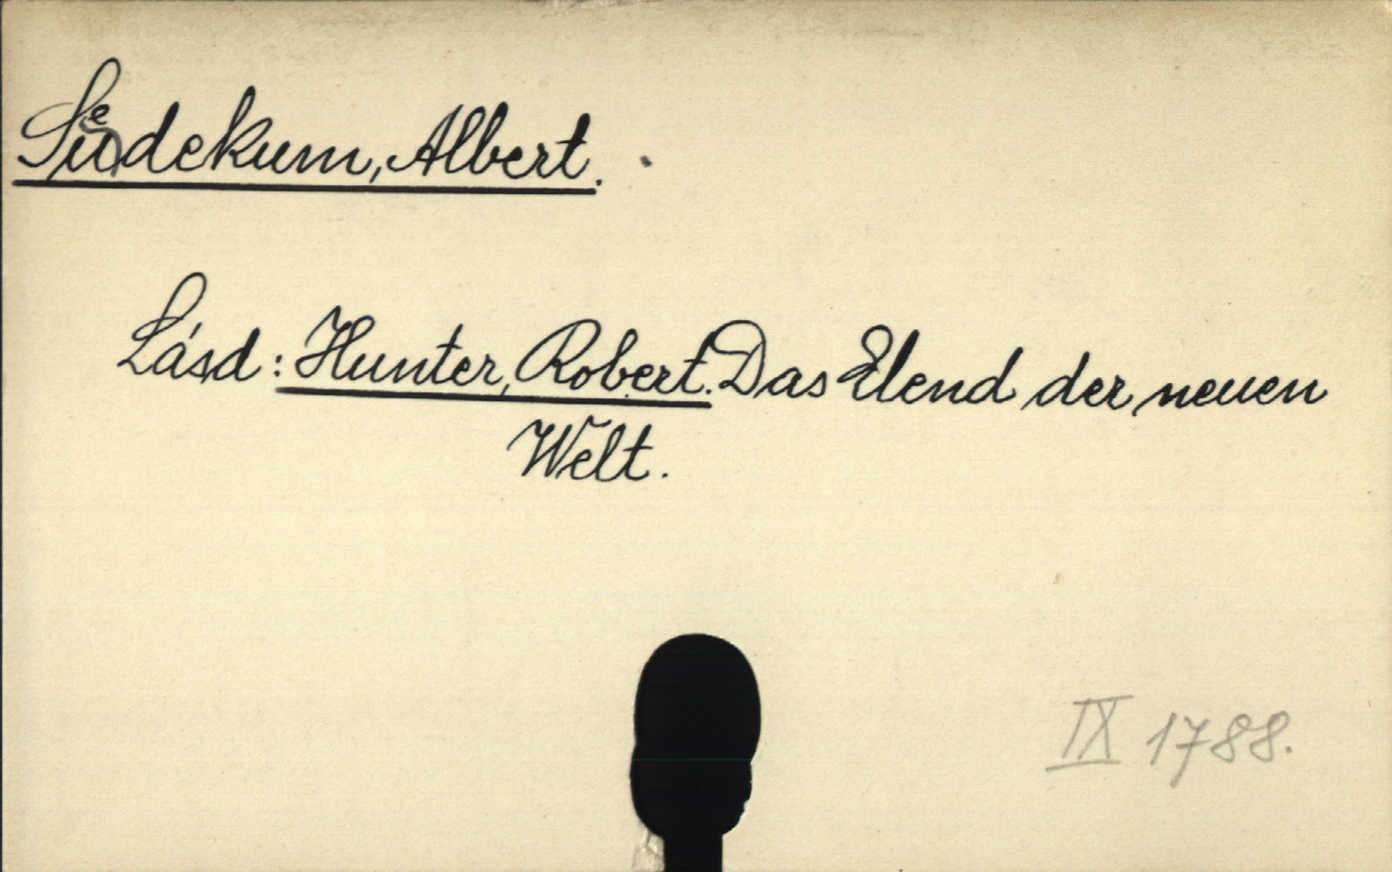 Südekum, Albert.
Lásd: Hunter, Robert. Das Elend der neuen
Welt.
IX 1788.